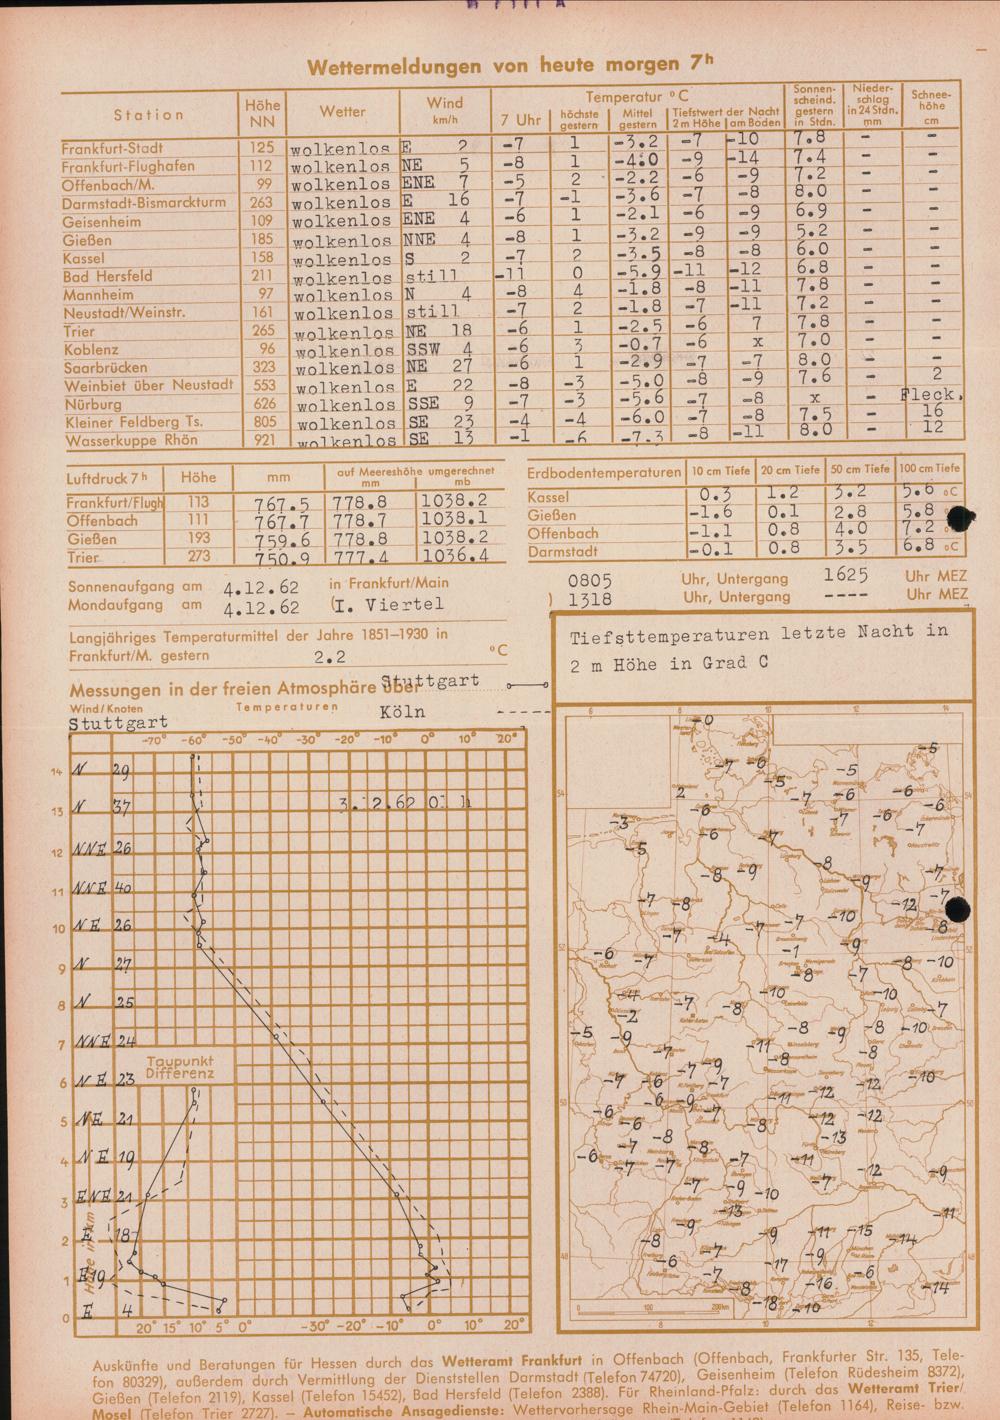 Wettermeldungen von heute morgen 7h
Station Höhe NN Wetter Wind km/h Temperatur °C Sonnen-scheind. gestern in Stdn. Nieder-schlag in 24 Stdn. mm Schnee-höhe cm
7 Uhr höchste gestern Mittel gestern Tiefstwert der Nacht 2 m Höhe am Boden
Frankfurt-Stadt 125 wolkenlos E 2 -7 1 -3.2 -7 -10 7.8 - -
Frankfurt-Flughafen 112 wolkenlos NE 5 -8 1 -4.0 -9 -14 7.4 - -
Offenbach/M. 99 wolkenlos ENE 7 -5 2 -2.2 -6 -9 7.2 - -
Darmstadt-Bismarckturm 263 wolkenlos E 16 -7 -1 -3.6 -7 -8 8.0 - -
Geisenheim 109 wolkenlos ENE 4 -6 1 -2.1 -6 -9 6.9 - -
Gießen 185 wolkenlos NNE 4 -8 1 -3.2 -9 -9 5.2 - -
Kassel 158 wolkenlos S 2 -7 2 -3.5 -8 -8 6.0 - -
Bad Hersfeld 211 wolkenlos still -11 0 -5.9 -11 -12 6.8 - -
Mannheim 97 wolkenlos N 4 -8 4 -1.8 -8 -11 7.8 - -
Neustadt/Weinstr. 161 wolkenlos still -7 2 -1.8 -7 -11 7.2 - -
Trier 265 wolkenlos NE 18 -6 1 -2.5 -6 7 7.8 - -
Koblenz 96 wolkenlos SSW 4 -6 3 -0.7 -6 x 7.0 - -
Saarbrücken 323 wolkenlos NE 27 -6 1 -2.9 -7 -7 8.0 - -
Weinbiet über Neustadt 553 wolkenlos E 22 -8 -3 -5.0 -8 -9 7.6 - 2
Nürburg 626 wolkenlos SSE 9 -7 -3 -5.6 -7 -8 x - Fleck.
Kleiner Feldberg Ts. 805 wolkenlos SE 23 -4 -4 -6.0 -7 -8 7.5 - 16
Wasserkuppe Rhön 921 wolkenlos SE 13 -1 -6 -7.3 -8 -11 8.0 - 12
Luftdruck 7h Höhe mm auf Meereshöhe umgerechnet mm mb
Frankfurt/Flugh 113 767.5 778.8 1038.2
Offenbach 111 767.7 778.7 1038.1
Gießen 193 759.6 778.8 1038.2
Trier 273 750.9 777.4 1036.4
Erdbodentemperaturen 10 cm Tiefe 20 cm Tiefe 50 cm Tiefe 100 cm Tiefe
Kassel 0.3 1.2 3.2 5.6 °C
Gießen -1.6 0.1 2.8 5.8
Offenbach -1.1 0.8 4.0 7.2
Darmstadt -0.1 0.8 3.5 6.8 °C
Sonnenaufgang am 4.12.62 in Frankfurt/Main 0805 Uhr, Untergang 1625 Uhr MEZ
Mondaufgang am 4.12.62 (I. Viertel ) 1318 Uhr, Untergang ---- Uhr MEZ
Langjähriges Temperaturmittel der Jahre 1851-1930 in
Frankfurt/M. gestern 2.2 °C
Tiefsttemperaturen letzte Nacht in
2 m Höhe in Grad C
Messungen in der freien Atmosphäre über Stuttgart
Wind/Knoten Temperaturen Köln
Stuttgart
-70° -60° -50° -40° -30° -20° -10° 0° 10° 20°
14 N 29
13 N 37 3.12.62 01 h
12 NNE 26
11 NNE 40
10 NE 26
9 N 27
8 N 25
7 NNE 24
Taupunkt
Differenz
6 NE 23
5 NE 21
4 NE 19
3 ENE 21
2 E 18
1 E 19
0 E 4
Höhe in km
20° 15° 10° 5° 0° -30° -20° -10° 0° 10° 20°
6 8 10 12 14
-0
-5
-7 -6 -5 -5
2 -7 -6 -6 -6
-3 -6 -7 -6 -7
-5 -6 -7
-8 -9 -8 -9 -7
-7 -8 -10 -12 -7
-7 -4 -7 -9 -8
-6 -7 -1 -8 -7 -8 -10
-4 -7 -8 -10 -10 -7
-2
-5 -9 -8 -9 -8 -10
-7 -7 -9 -11 -8 -8
-7 -6 -7 -12 -10
-6 -6 -9 -7 -11 -12
-6 -8 -12 -12
-7 -8 -8 -13
-6 -7 -7 -7 -11
-7 -9 -10 -7 -12 -9
-9 -13 -9 -11 -15 -14 -11
-8 -6 -7 -17 -9
-7 -8 -16 -6 -14
-18 -10
0 100 200km
Auskünfte und Beratungen für Hessen durch das Wetteramt Frankfurt in Offenbach (Offenbach, Frankfurter Str. 135, Tele-
fon 80329), außerdem durch Vermittlung der Dienststellen Darmstadt (Telefon 74720), Geisenheim (Telefon Rüdesheim 8372),
Gießen (Telefon 2119), Kassel (Telefon 15452), Bad Hersfeld (Telefon 2388). Für Rheinland-Pfalz: durch das Wetteramt Trier/
Mosel (Telefon Trier 2727). — Automatische Ansagedienste: Wettervorhersage Rhein-Main-Gebiet (Telefon 1164), Reise- bzw.